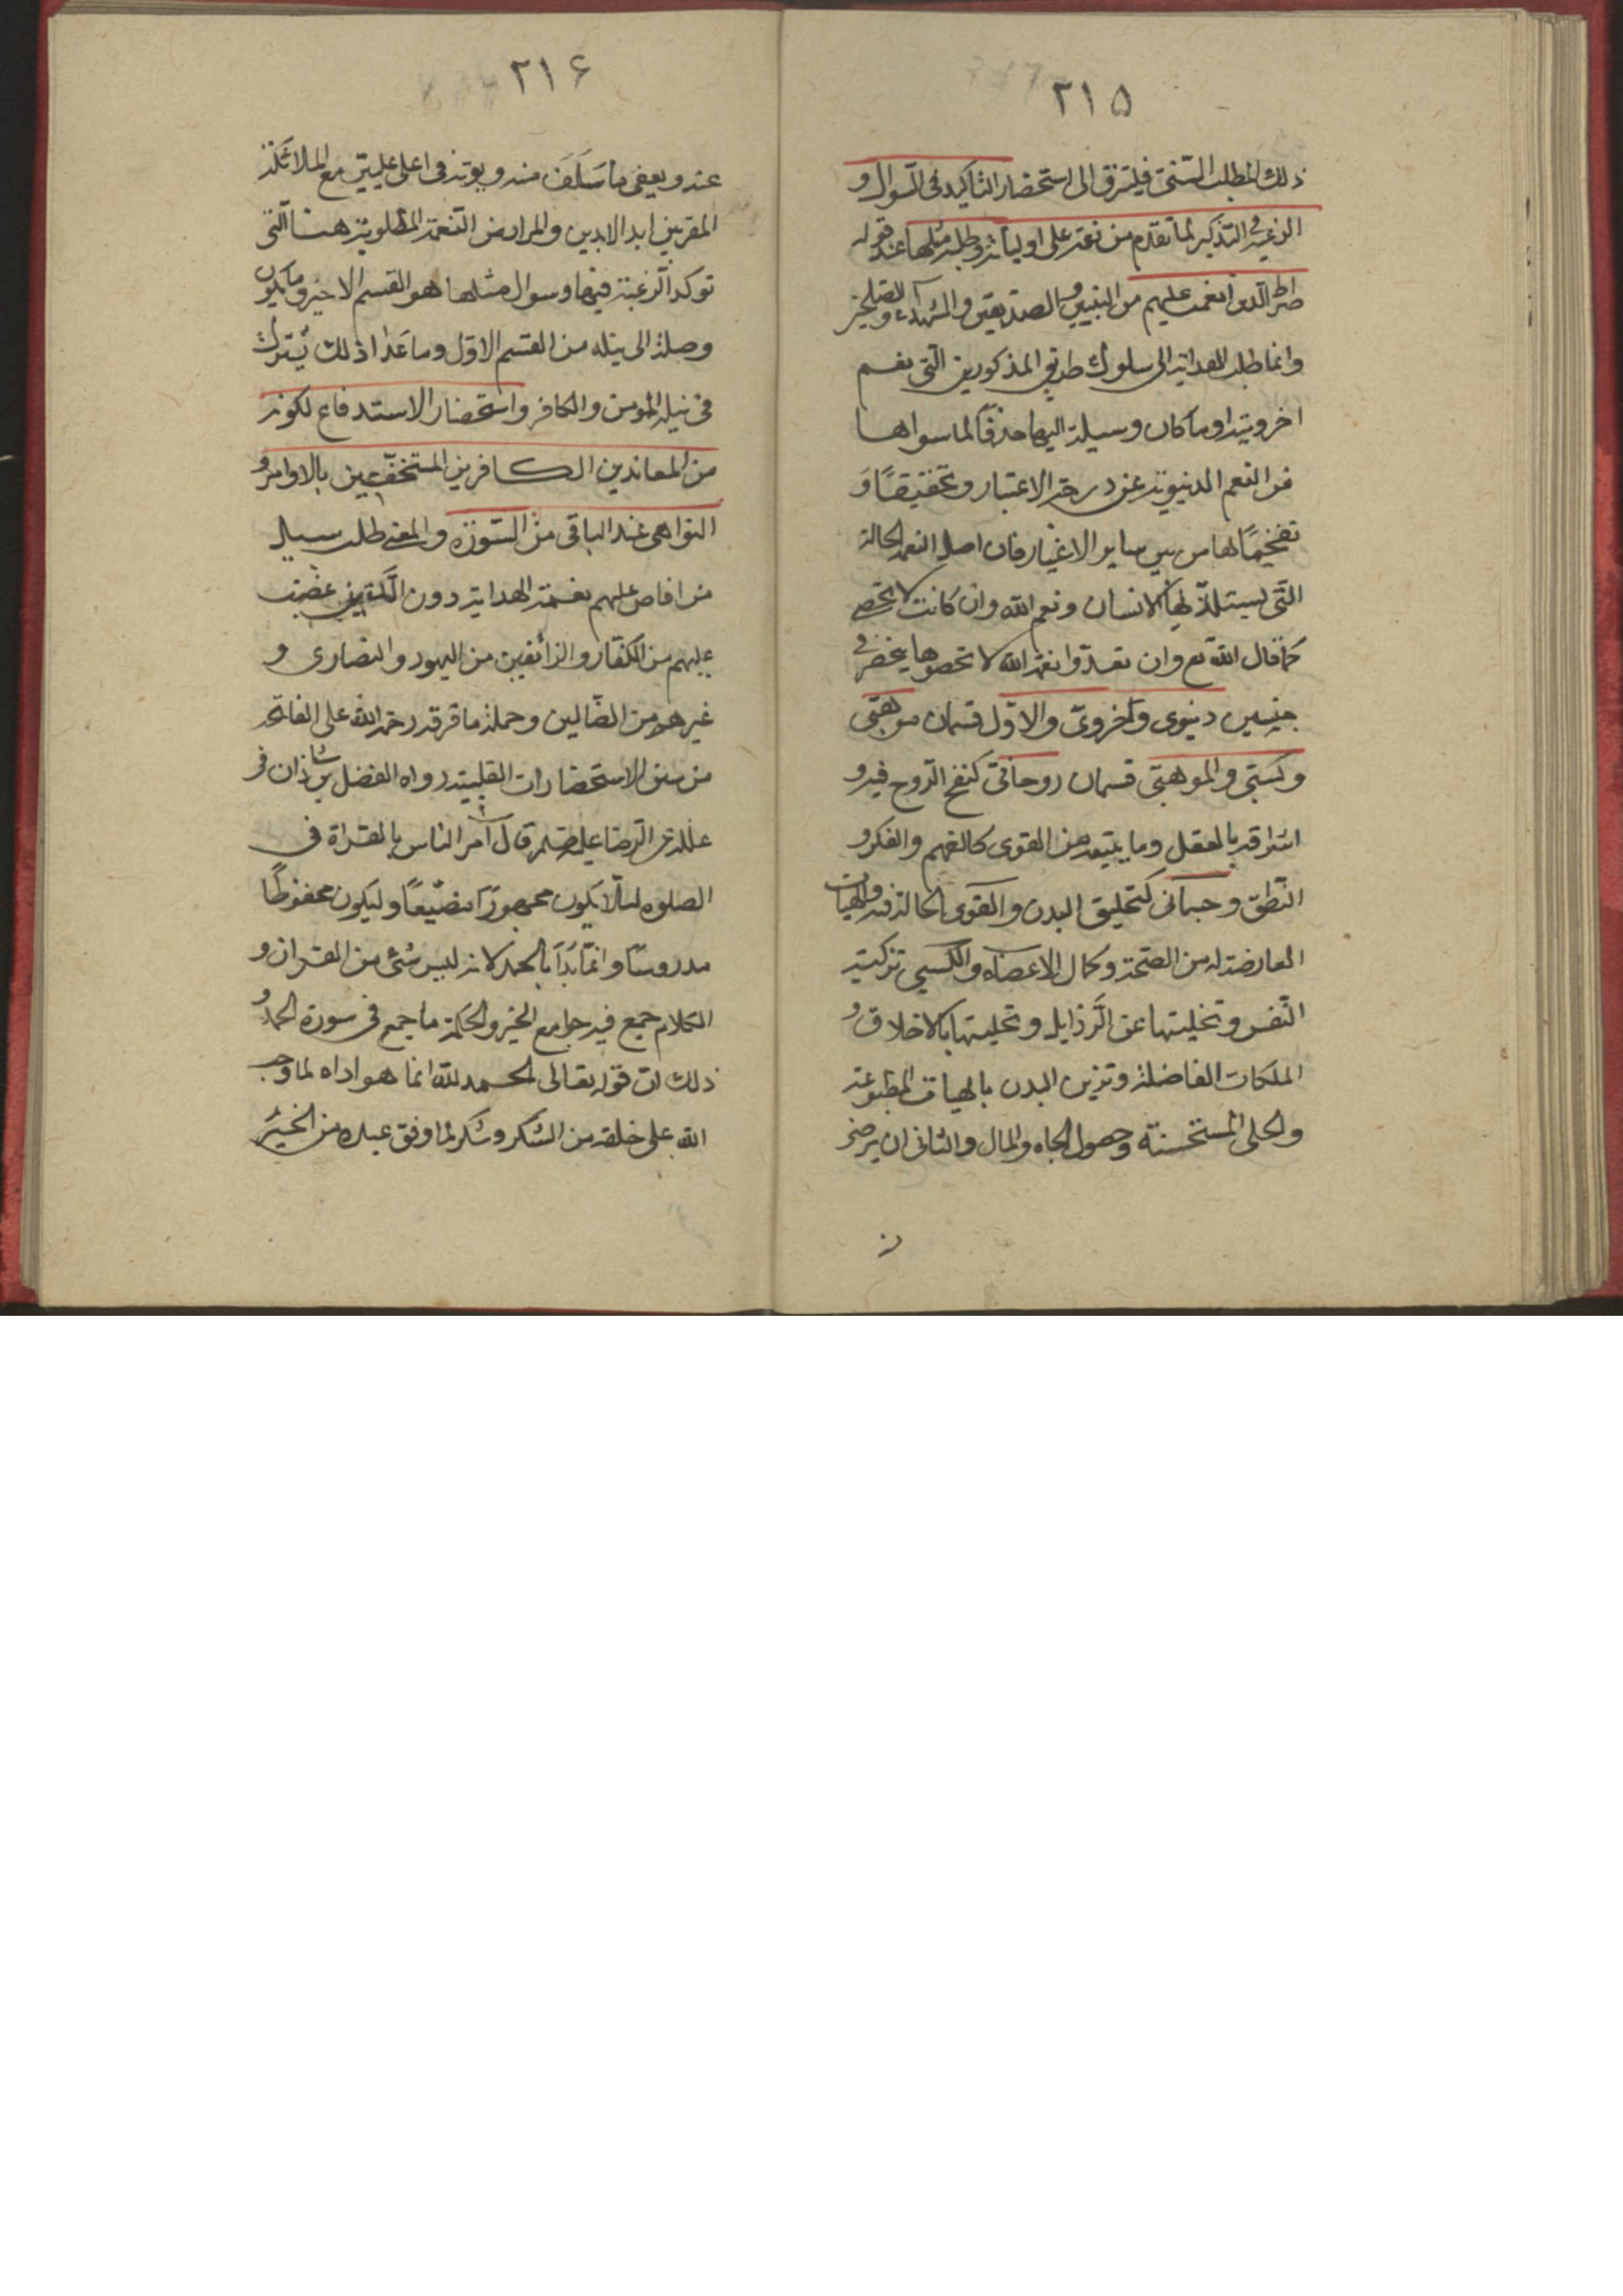 ۲۱۵
ذلك المطلب السنى فليترق الى استحضار التاكيد فى السوال و
الرغبة فى التذكير لما تقدم من نعمه على اوليائه وطلب مثلها عند قوله
صراط الذين انعمت عليهم من النبيين والصديقين والشهداء والصلحين
وانما طلب الهداية الى سلوك طريق المذكورين التى نعم
اخروية او ما كان وسيلة اليها حذفًا لما سواها
من النعم الدنيوية عن درجة الاعتبار وتخصيصًا وَ
تفخيمًا لها من بين ساير الاغيار فان اصل النعمة الحالة
التى يستلذّ بها الانسان ونعم الله وان كانت لا تحصى
كما قال الله تع وان تعدّوا نعمة الله لا تحصوها ينحصر فى
جنسين دنيوى واخروىّ والاوّل قسمان موهبتى
وكسبىّ والموهبتى قسمان روحانىّ كنفخ الرّوح فيه و
اشراقه بالعقل وما يتبعه من القوى كالفهم والفكر و
النّطق وجسمانى كتخليق البدن والقوى الحالة فيه والهيات
العارضة له من الصّحة وكمال الاعضاء والكسبى تزكية
النّفس وتخليتها عن الرّذايل وتحليتها بالاخلاق و
الملكات الفاضلة وتزيين البدن بالهيات المطبوعة
والحلى المستحسنة وحصول الجاه والمال والثانى ان يرضى
۲۱۶
عنه ويعفى ما سَلَفَ منه ويوته فى اعلى عليّين مع الملائكة
المقربين ابد الابدين والمراد من النّعمة المطلوبة هنا الّتى
توكد الرّغبة فيها وسوال مثلها هو القسم الاخير وما يكون
وصلة الى نيله من القسم الاوّل وما عَدا ذلك يشترك
فى نيله المومن والكافر واستحضار الاستدفاع لكونه
من المعاندين الكافرين المستخفّين بالاوامر و
النواهى عند الباقى من السّورة والمعنى طلب سبيل
من افاض عليهم نعمة الهداية دون الّذين غضبت
عليهم من الكفّار والزائغين من اليهود والنصارى و
غيرهم من الضّالين وجملة ما فرقه رحمه الله على الفاتحة
من سنن الاستحضارات القلبية رواه الفضل بن شاذان فى
علله عن الرّضا عليه السلم قال آمر الناس بالقراة فى
الصلوه لئلّا يكون مهجورًا مضيّعًا وليكون محفوظًا
مدروسًا وانّما بَدَأ بالحمد لانه ليس شئ من القران و
الكلام جمع فيه جوامع الخير والحكمة ما جمع فى سورة الحمد و
ذلك ان قوله تعالى الحمد لله انما هو اداه لما وجب
الله على خلقه من الشّكر وشكر لما اوفق عبده من الخير